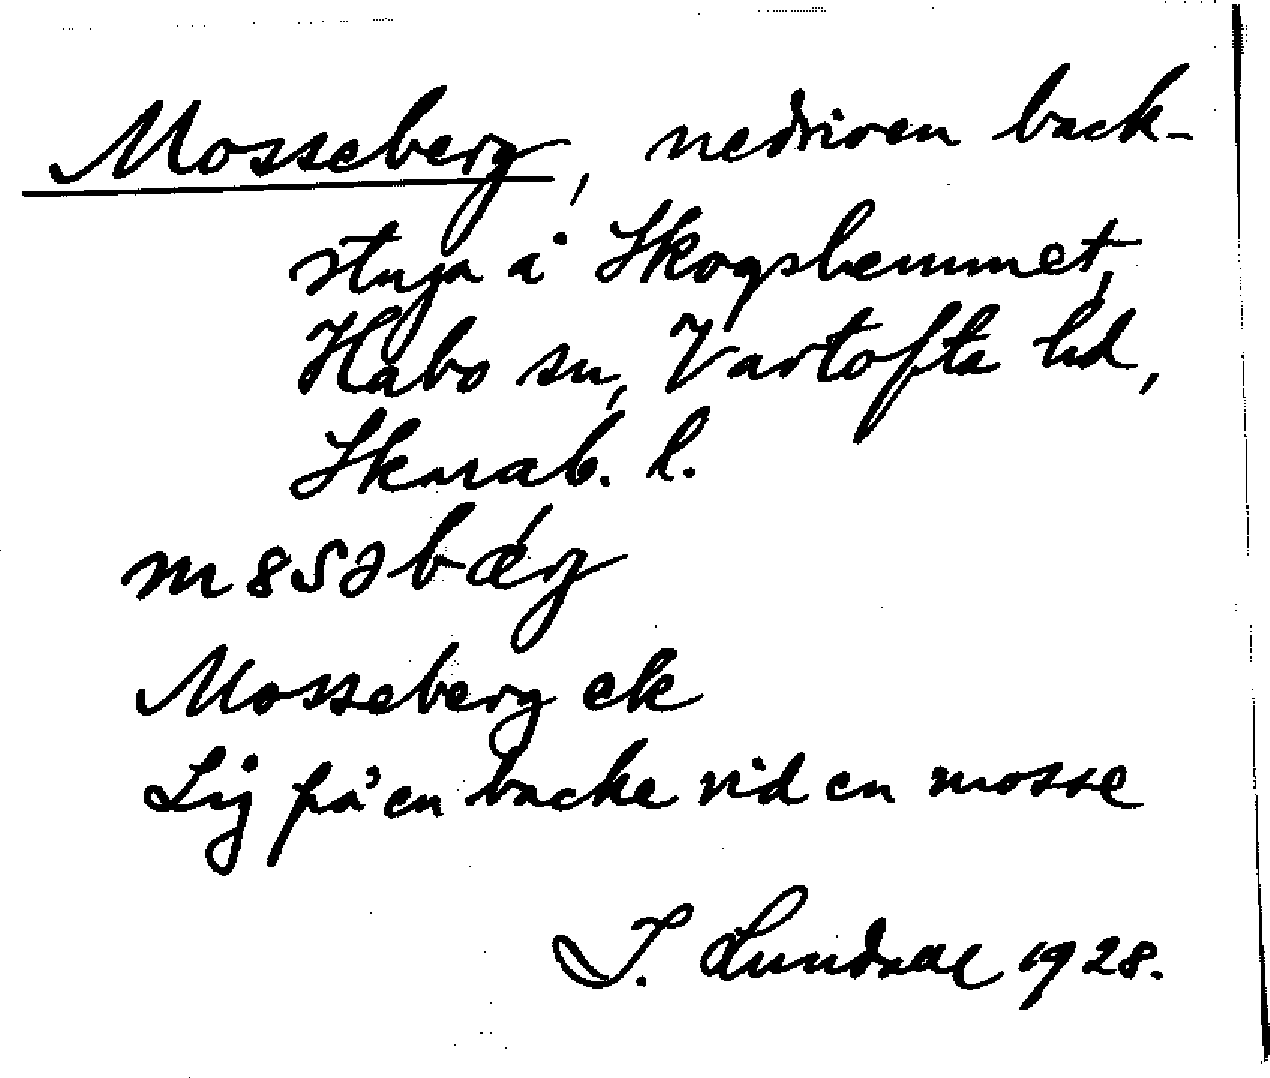 Mosseberg, nedriven back-
stuga å Skogshemmet,
Habo sn, Vartofta hd,
Skarab. l.
m8SƏbǽrg
Mosseberg ek
Låg på en backe vid en mosse
I. Lundahl 1928.